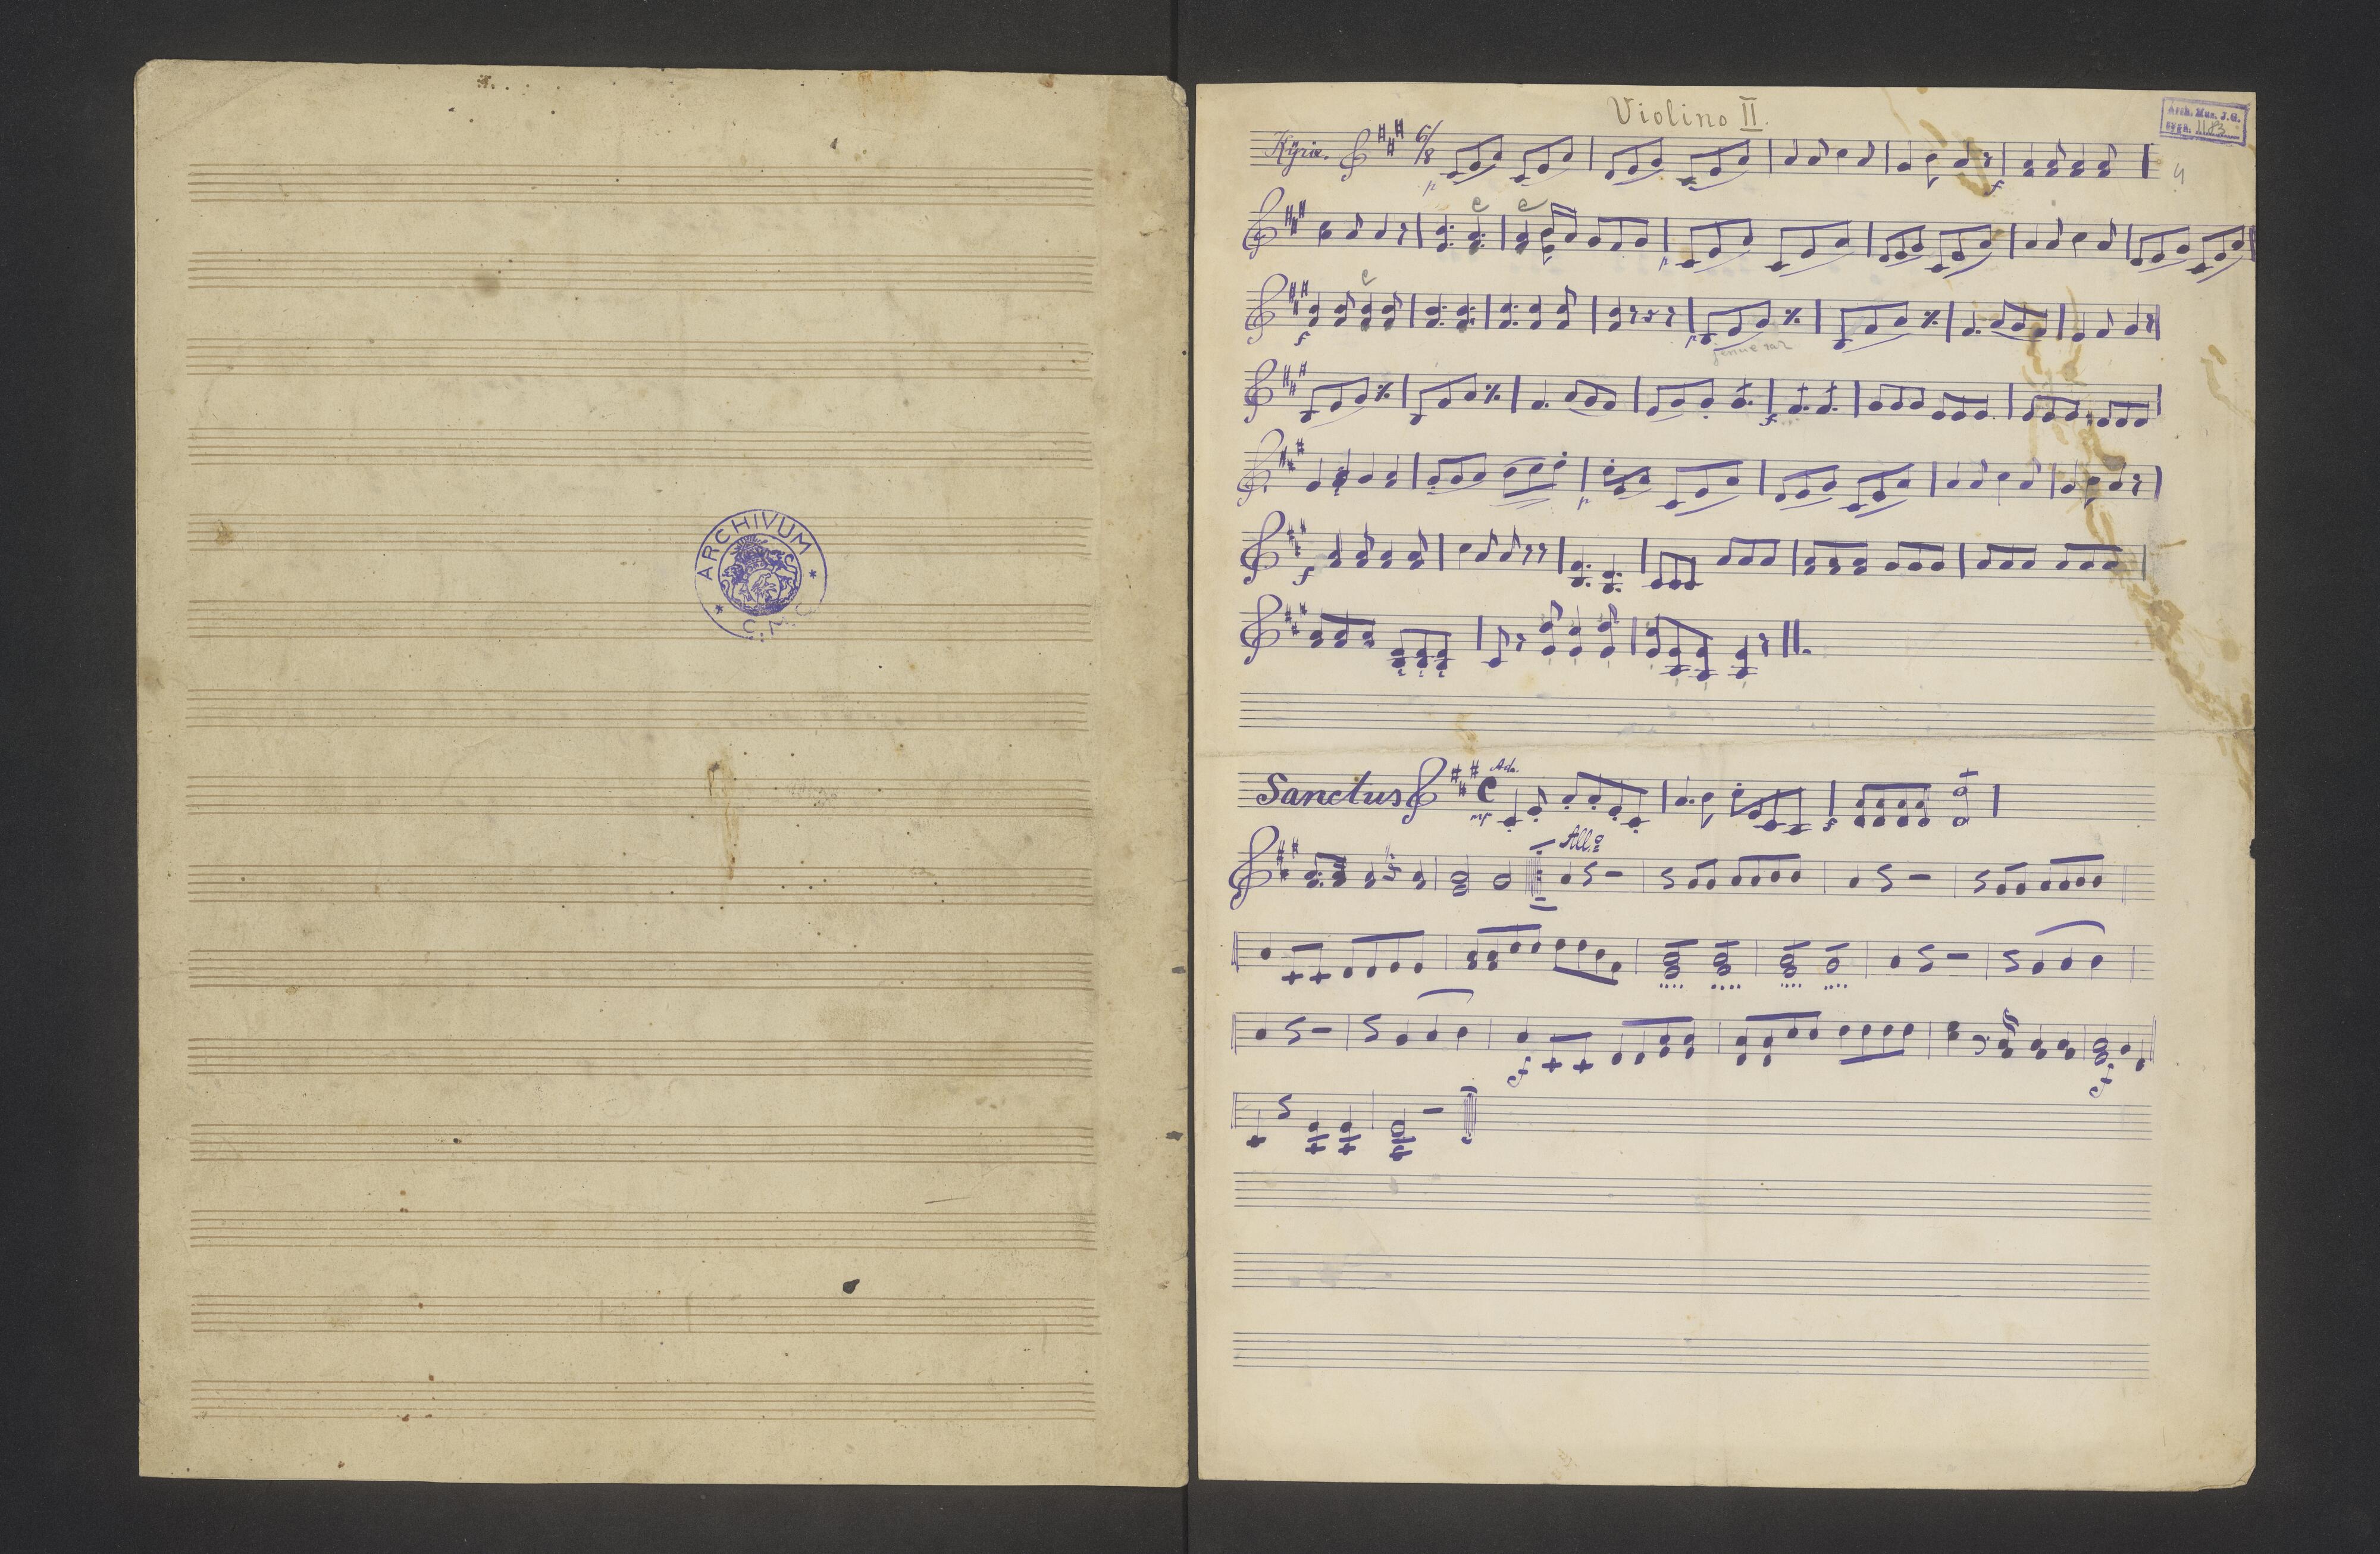 ARCHIVUM
C.M.C
Violino II.
Arch. Mus. J.G.
sygn. 1183
Kyrie. 6/8
p
f
4
e e
p
f
e
p
f
p
f
Sanctus Ado.
mf
f
All.o
f
f